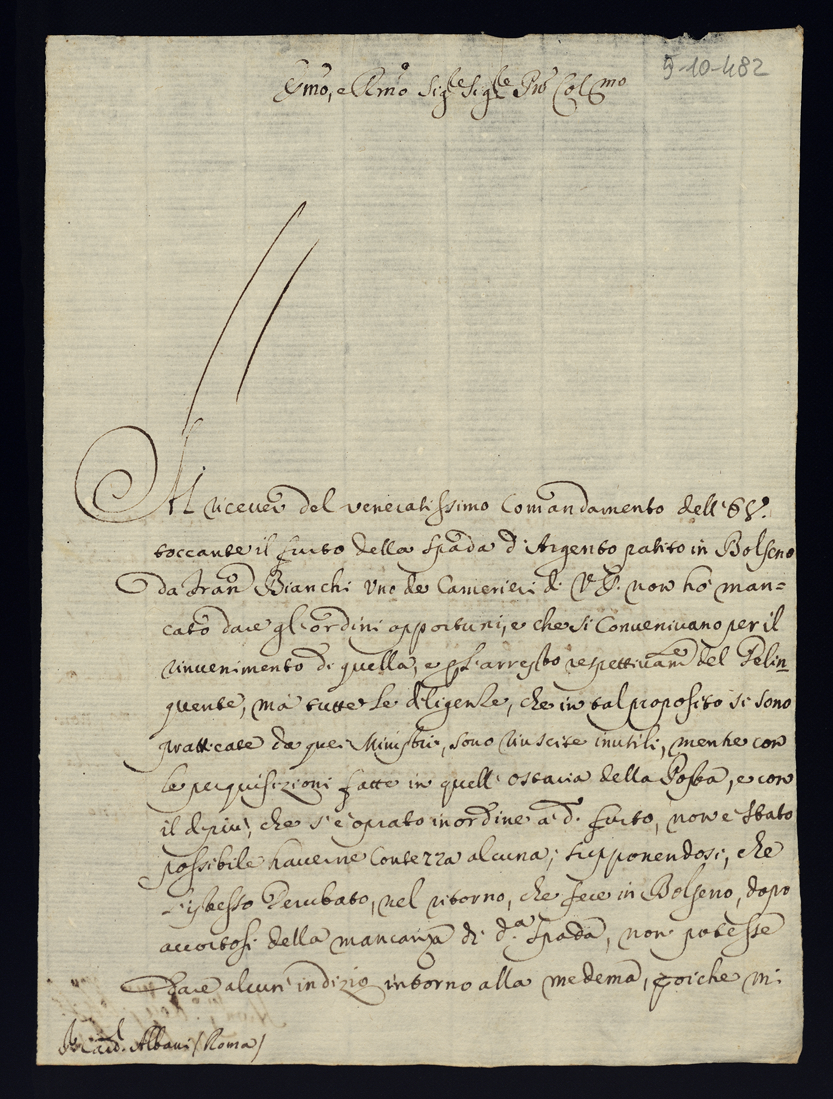 5-10-482
Emo, e Rmo Sigre Sigre Prõ Colmo
Al ricever del veneratissimo Comandamento dell' E.V.
toccante il furto della Spada d'Argento patito in Bolseno
da Fran. Bianchi uno de Camerieri di V.E. non hò man=
cato dare gl'ordini opportuni, e che si Convenivano per il
rinvenimento di quella, e p l'arresto respettivam. del Delin=
quente, mà tutte le diligenze, che in tal proposito si sono
pratticate da quei Ministri, sono riuscite inutili, mentre con
le perquisizioni fatte in quell' ostaria della Posta, e con
il di più, che s'è oprato in ordine a d. furto, non è stato
possibile haverne Contezza alcuna; supponendosi, che
l'istesso Derubato, nel ritorno, che fece in Bolseno, dopo
accortosi della mancanza di d.a Spada, non potesse
dare alcun' indizio intorno alla medema, poiche mi
Sr Card. Albani (Roma)